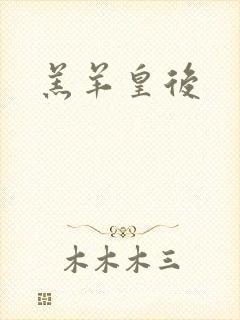 羔羊皇後
木木木三